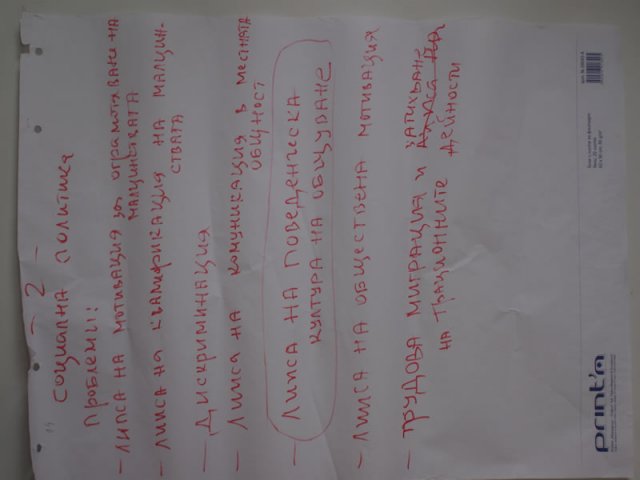 - 2 -
СОЦИАЛНА ПОЛИТИКА
ПРОБЛЕМИ:
- ЛИПСА НА МОТИВАЦИЯ ЗА ОГРАМОТЯВАНЕ НА
МАЛЦИНСТВАТА
- ЛИПСА НА КВАЛИФИКАЦИЯ НА МАЛЦИН-
СТВАТА
- ДИСКРИМИНАЦИЯ
- ЛИПСА НА КОМУНИКАЦИЯ В МЕСТНАТА
ОБЩНОСТ
- ЛИПСА НА ПОВЕДЕНЧЕСКА
КУЛТУРА НА ОБЩУВАНЕ
- ЛИПСА НА ОБЩЕСТВЕНА МОТИВАЦИЯ
- ТРУДОВА МИГРАЦИЯ И ЗАТИХВАНЕ
НА ТРАЦИОННИТЕ ДЕЙНОСТИ
PRINT'A